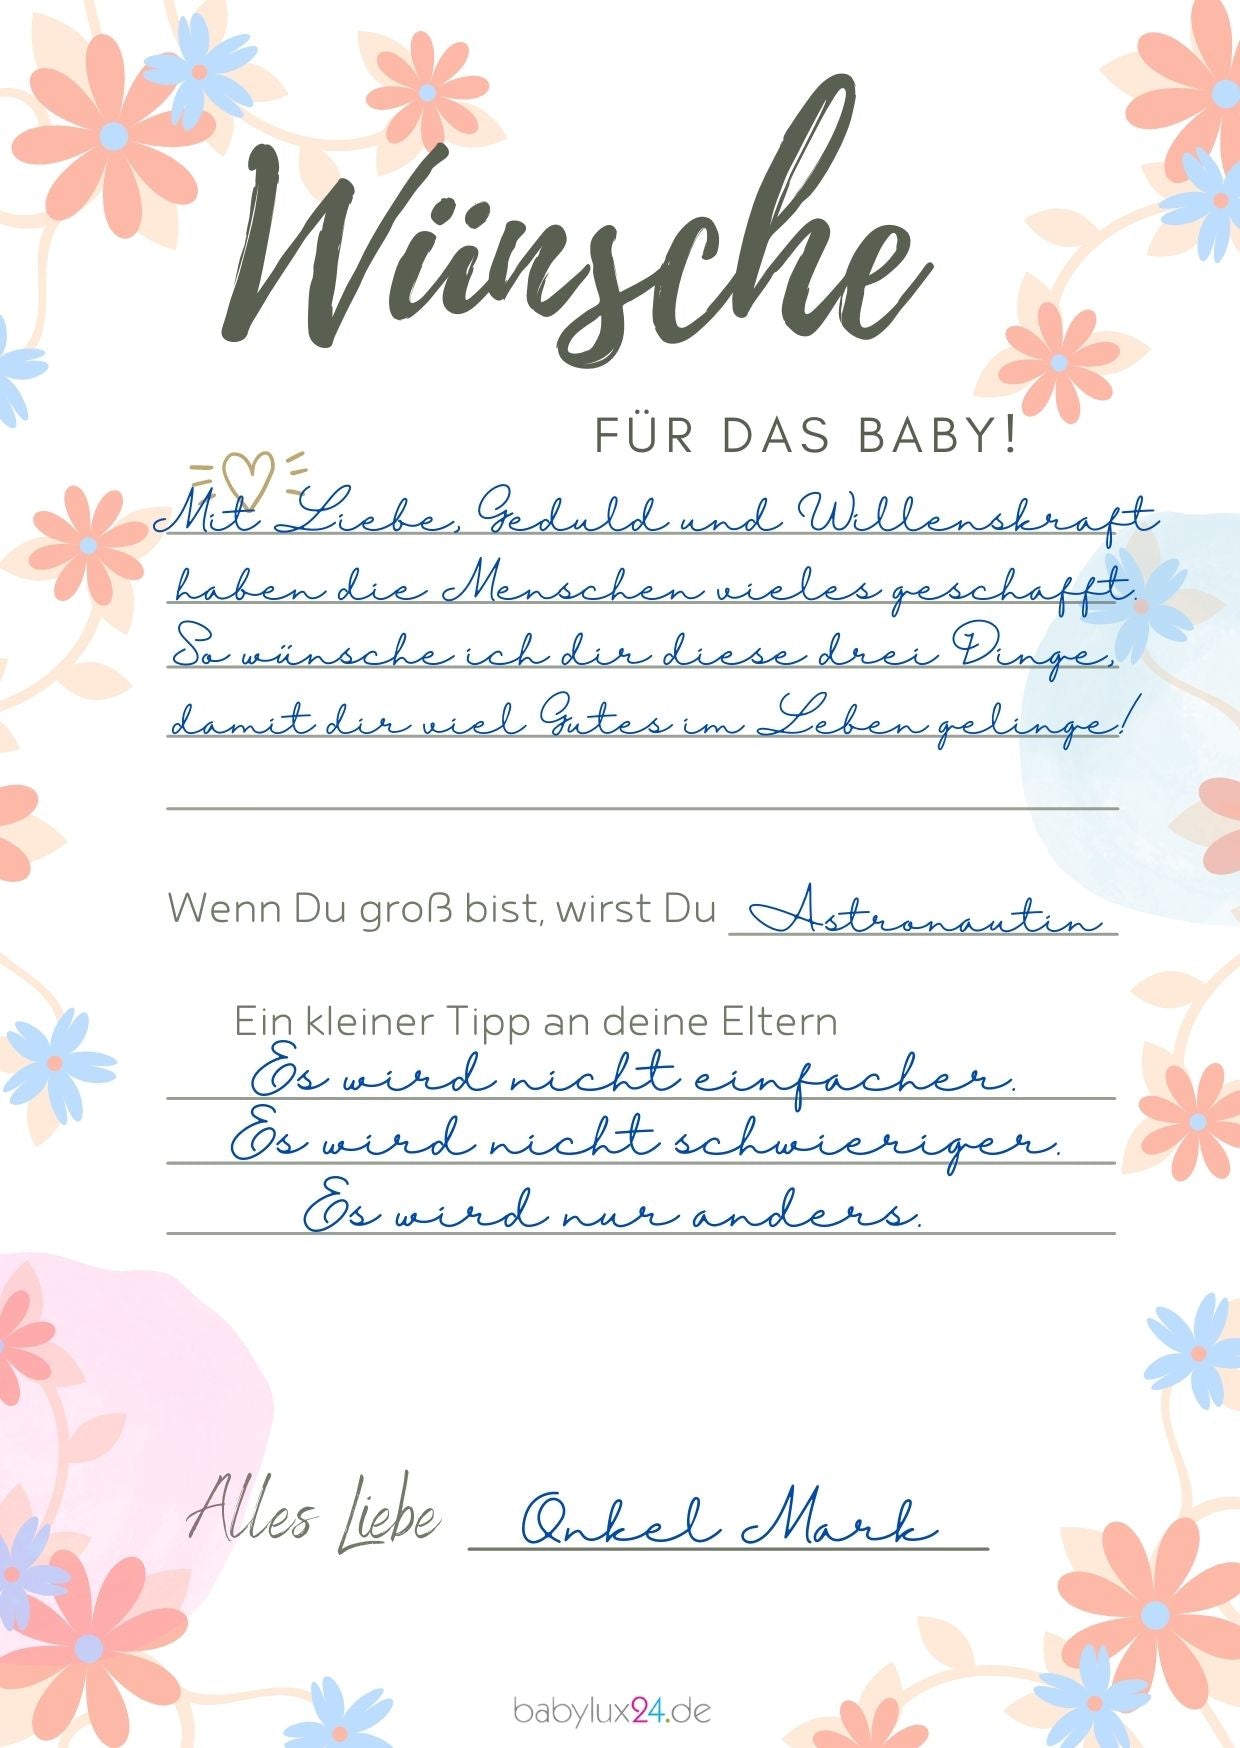 Wünsche
FÜR DAS BABY!
Mit Liebe, Geduld und Willenskraft
haben die Menschen vieles geschafft.
So wünsche ich dir diese drei Dinge,
damit dir viel Gutes im Leben gelinge!
Wenn Du groß bist, wirst Du Astronautin
Ein kleiner Tipp an deine Eltern
Es wird nicht einfacher.
Es wird nicht schwieriger.
Es wird nur anders.
Alles Liebe Onkel Mark
babylux24.de